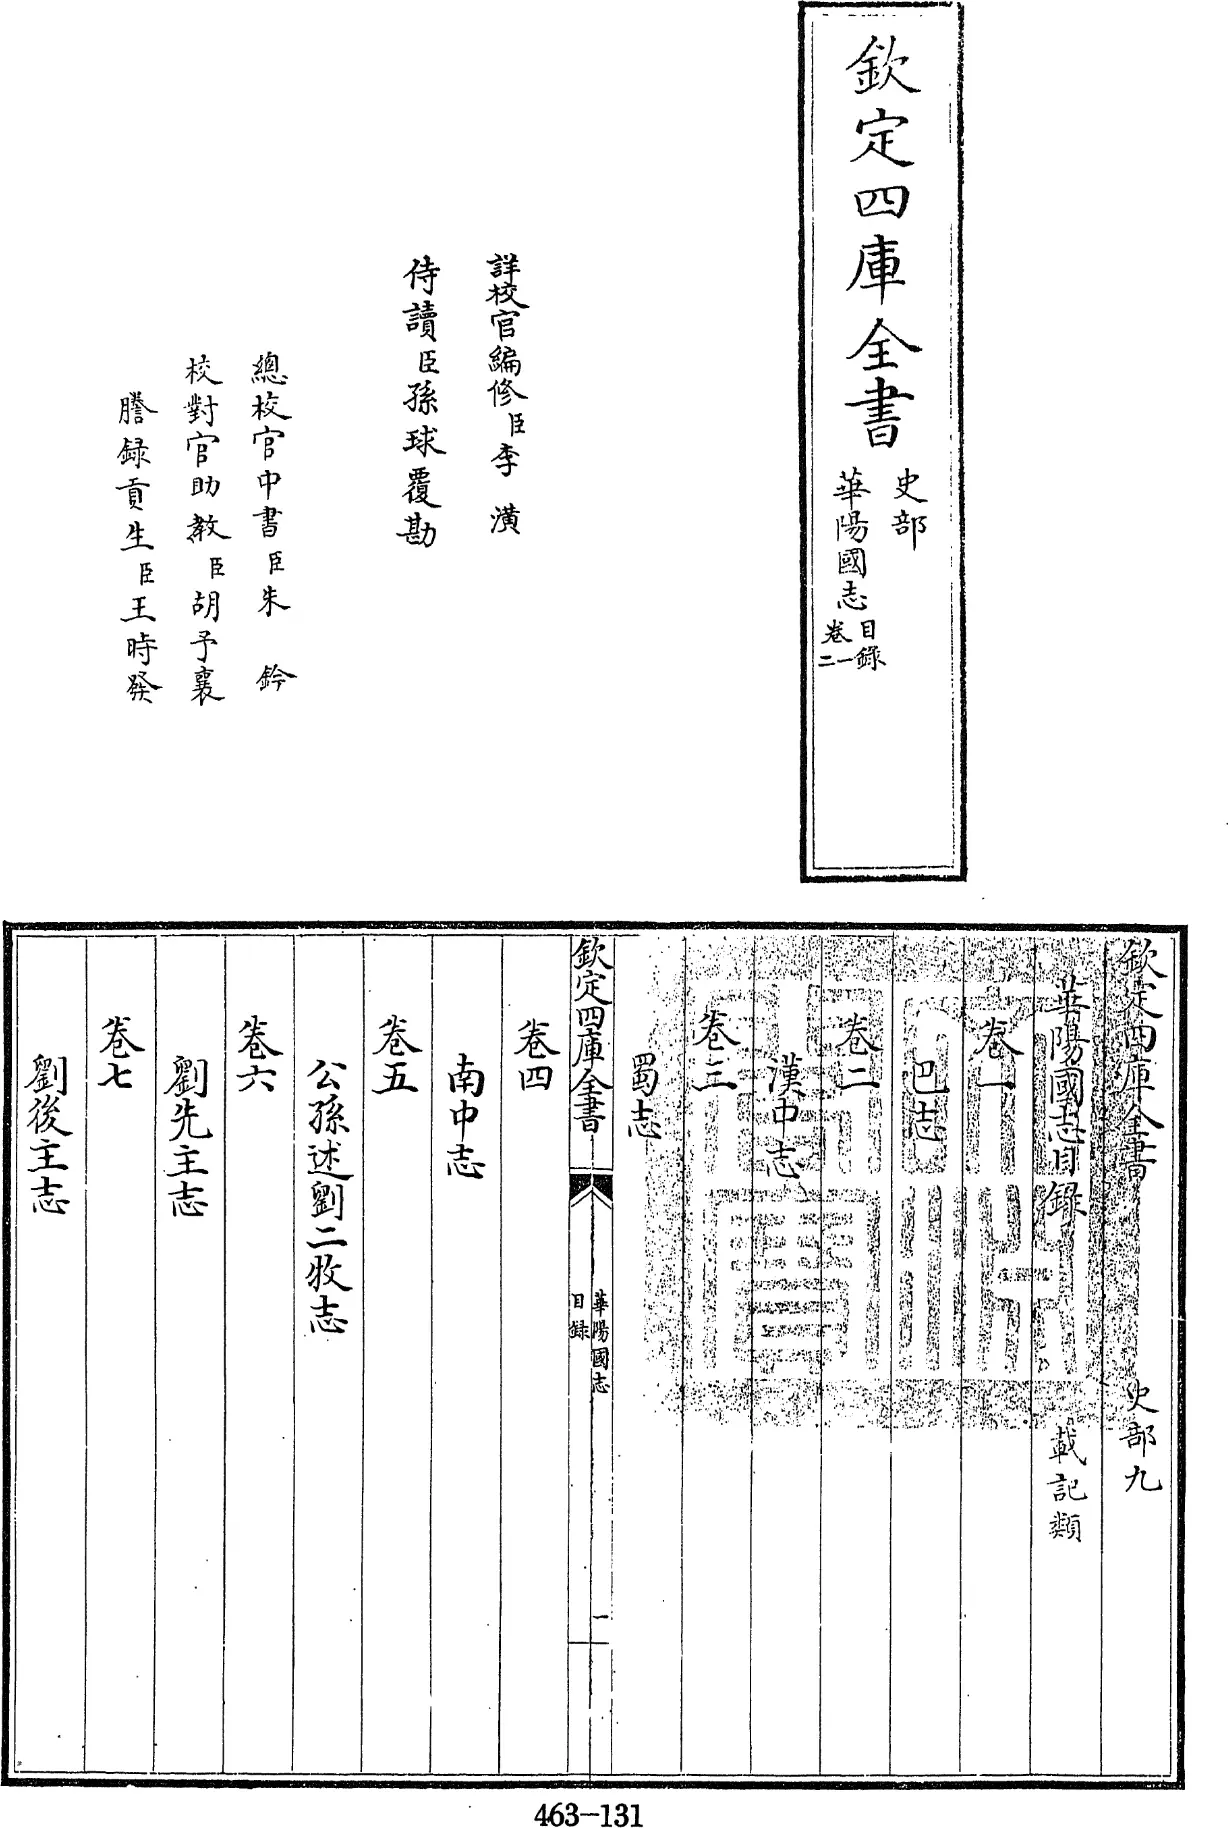 欽定四庫全書
史部
華陽國志
目錄
卷一
二
詳校官編修臣李潢
侍讀臣孫球覆勘
總校官中書臣朱鈐
校對官助教臣胡予襄
謄錄貢生臣王時發
欽定四庫全書 史部九
華陽國志目錄 載記類
卷一
巴志
卷二
漢中志
卷三
蜀志
欽定四庫全書
華陽國志
目錄
一
卷四
南中志
卷五
公孫述劉二牧志
卷六
劉先主志
卷七
劉後主志
463-131